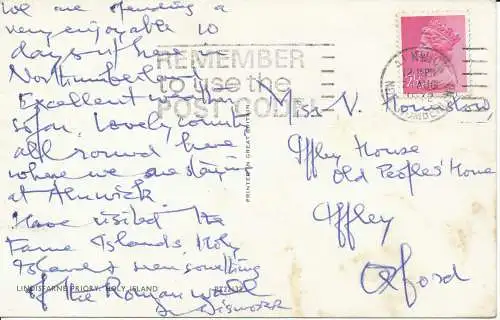 We are spending a
very enjoyable 10
days out here in
Northumberland
Excellent weather
so far. Lovely country
all round here
where we are staying
at Alnwick.
Have visited the
Farne Islands, Holy
Island & seen something
of the Roman wall
LINDISFARNE PRIORY, HOLY ISLAND
PRINTED IN GREAT BRITAIN
REMEMBER
to use the
POST CODE
AUG
Mrs V. Hounslow
Iffley House
Old Peoples' Home
Iffley
Oxford